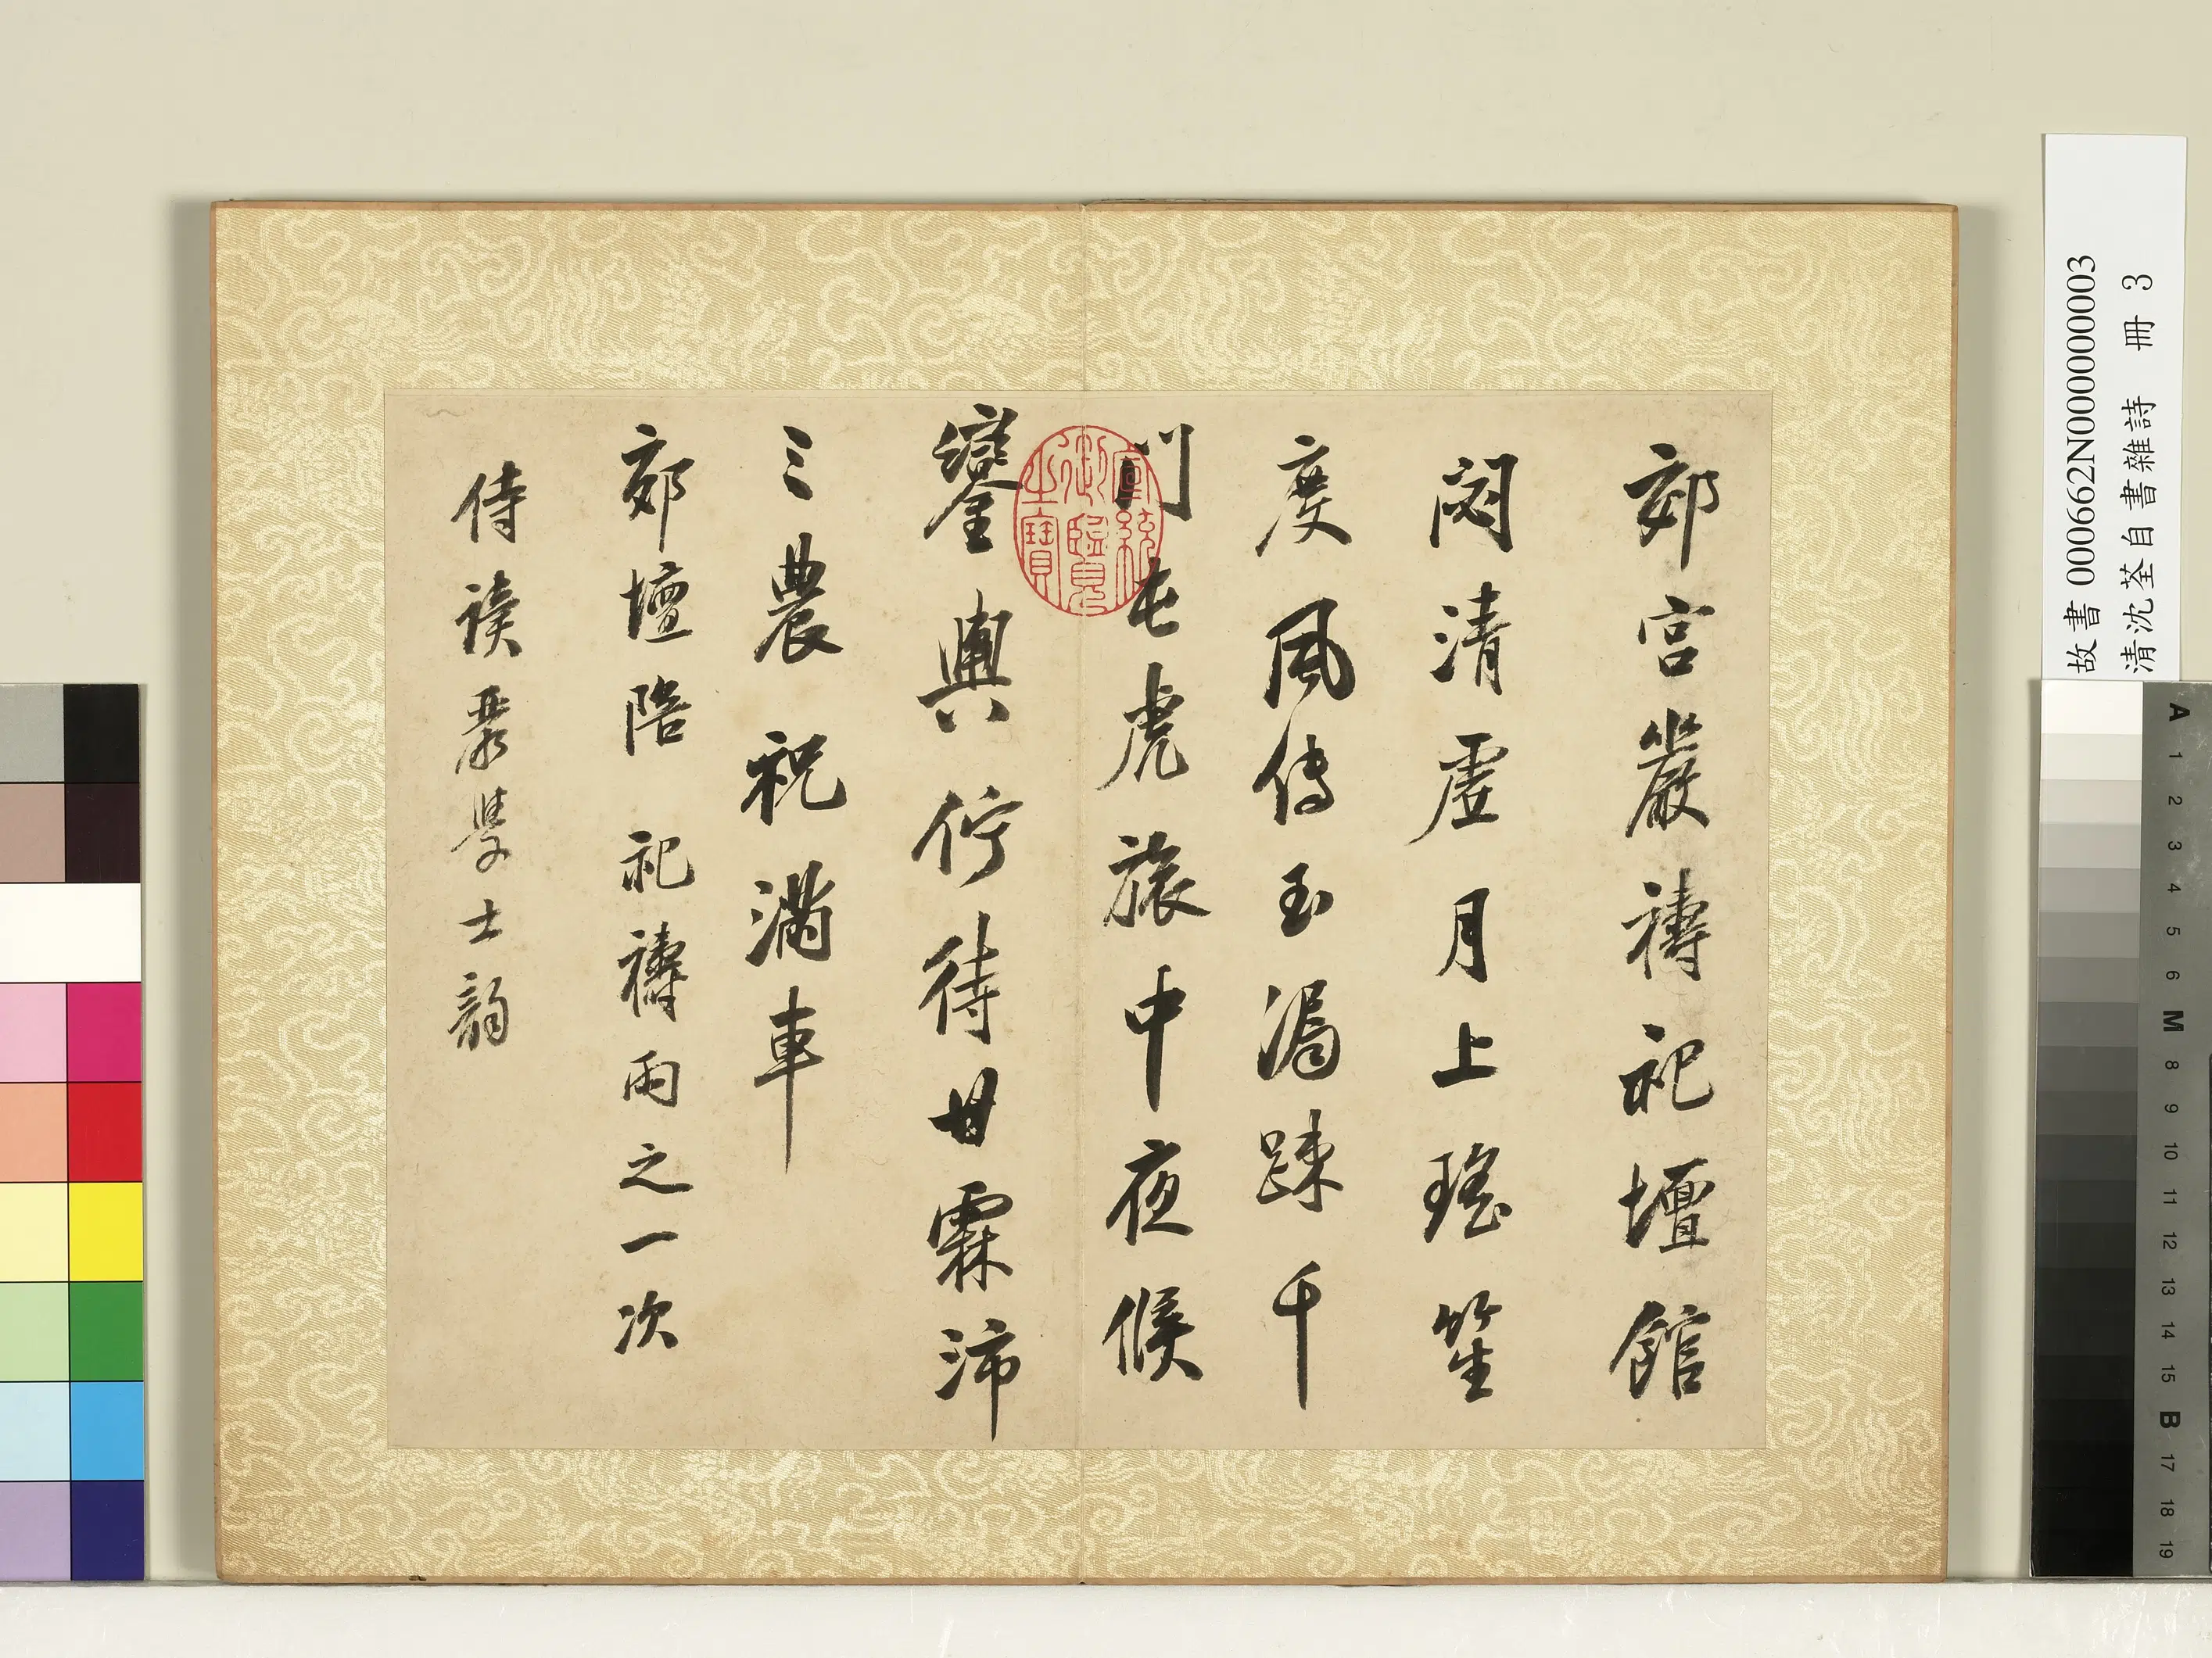 郊宮嚴禱祀壇館
閟清虛月上瑤笙
度風傳玉漏踈千
門屯虎旅中夜候
鑾輿佇待甘霖沛
三農祝滿車
郊壇陪 祀禱雨之一次
侍讀嚴學士韻
宣統御覽之寶
故書 000662N000000003
清沈荃自書雜詩 冊 3
A 1 2 3 4 5 6 M 8 9 10 11 12 13 14 15 B 17 18 19